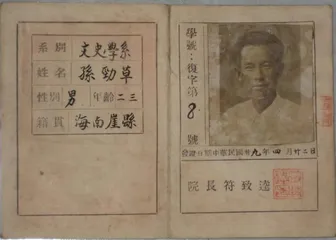 系別 文史學系
姓名 孫勁草
性別 男 年齡 二三
籍貫 海南崖縣
學號：復字第8號
發證日期中華民國卅九年四月廿二日
院長符致逵